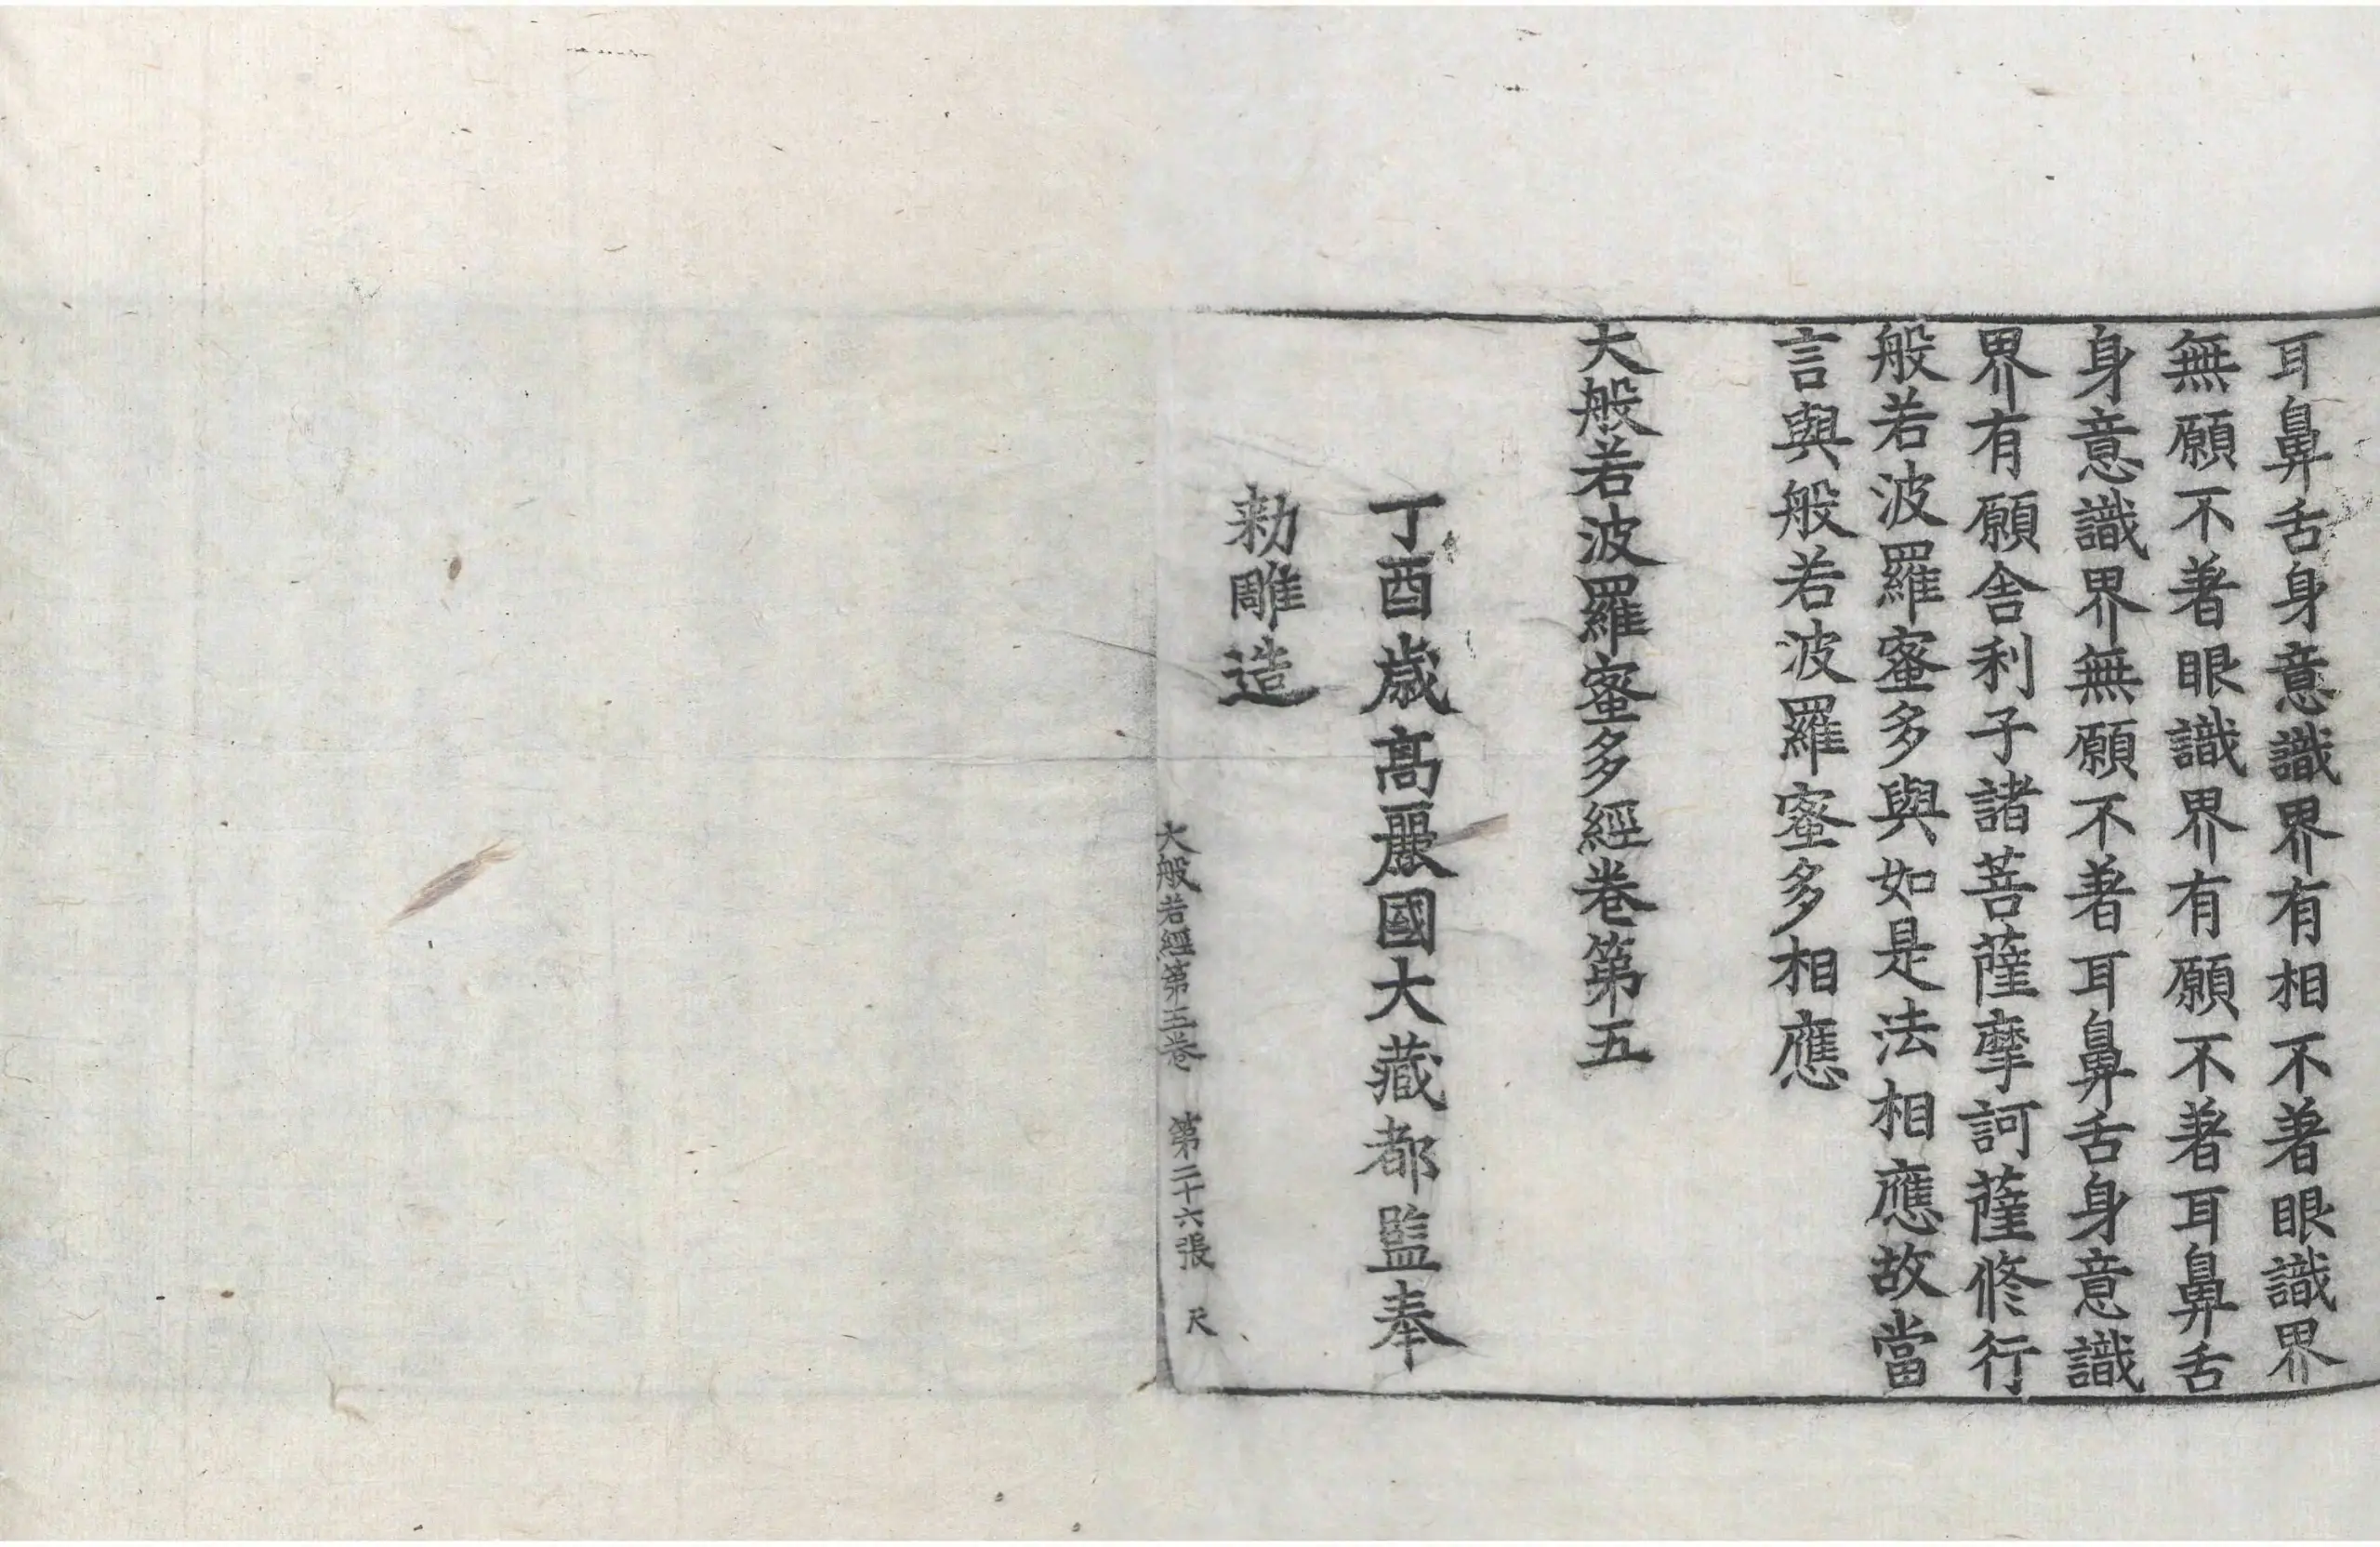 耳鼻舌身意識界有相不著眼識界
無願不著眼識界有願不著耳鼻舌
身意識界無願不著耳鼻舌身意識
界有願舍利子諸菩薩摩訶薩修行
般若波羅蜜多與如是法相應故當
言與般若波羅蜜多相應
大般若波羅蜜多經卷第五
丁酉歲高麗國大藏都監奉
勅雕造
大般若經第五卷 第二十六張 尺